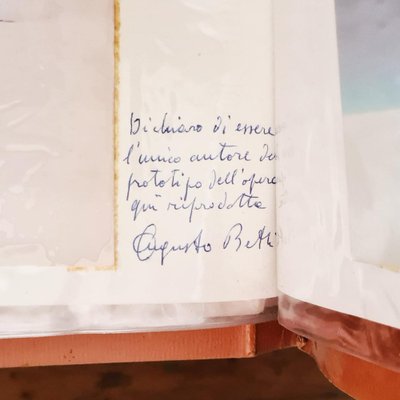 Dichiaro di essere
l'unico autore del
prototipo dell'opera
qui riprodotta
Augusto Betti